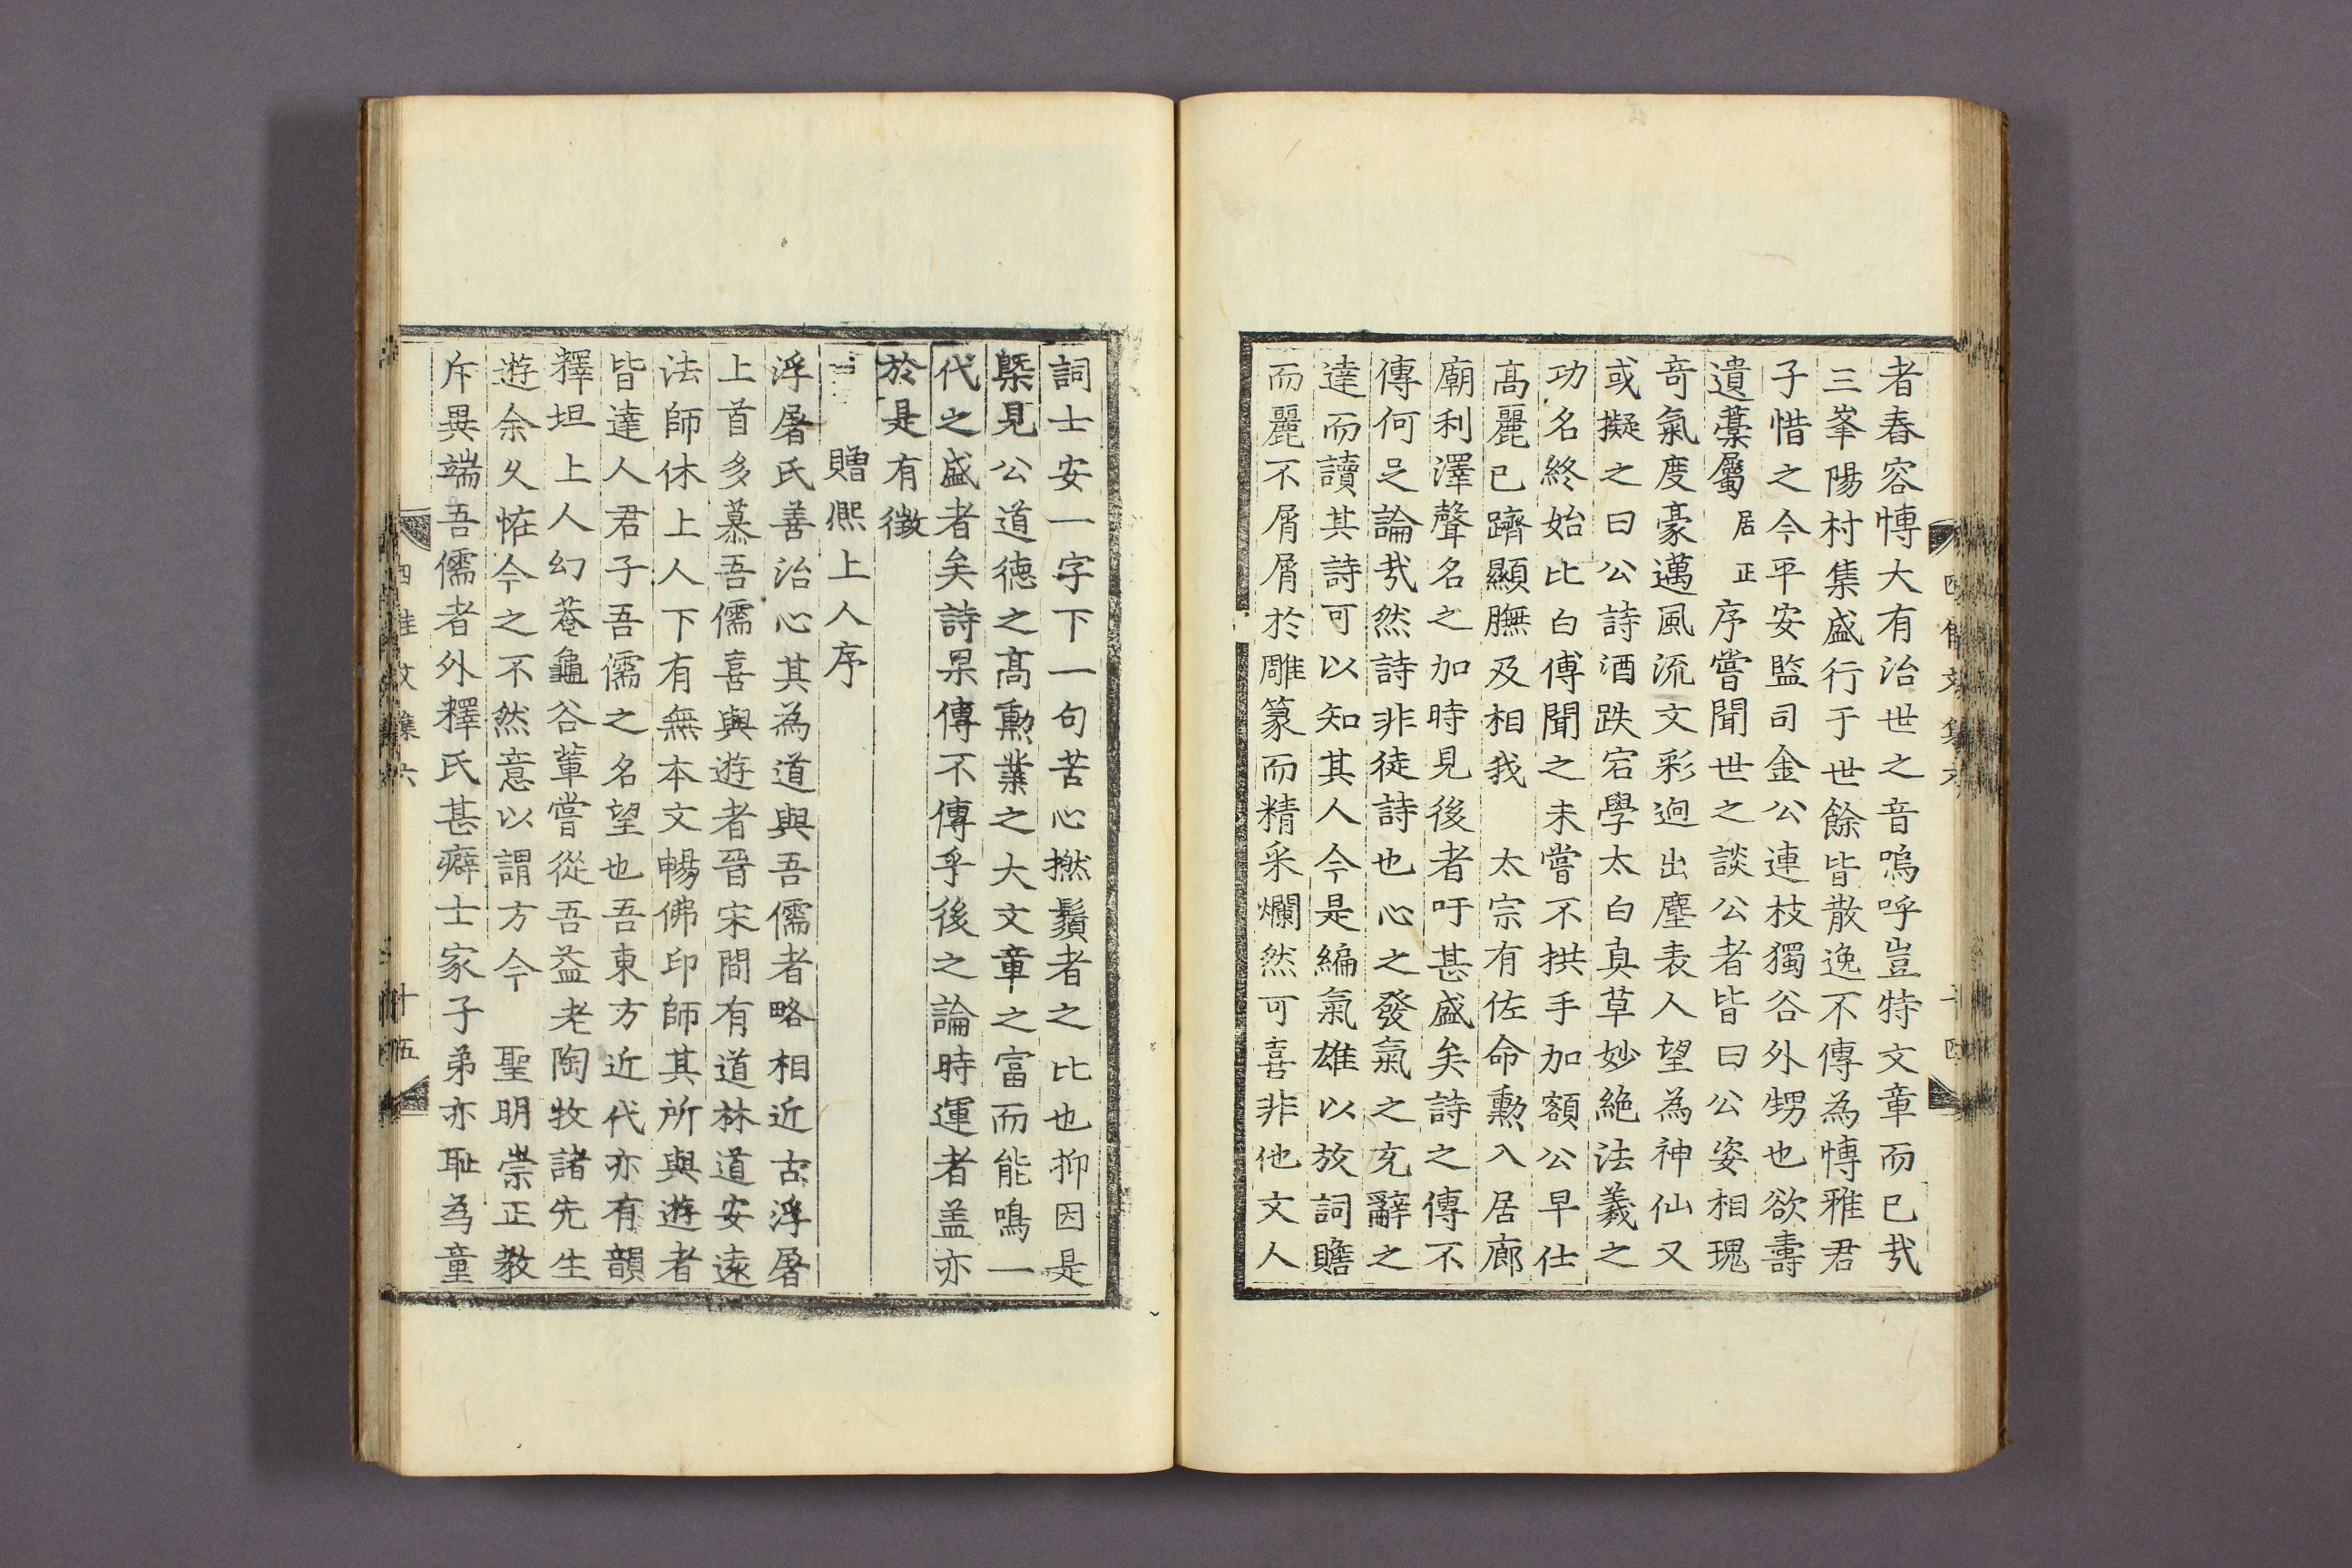 者舂容愽大有治世之音嗚呼豈特文章而已㢤
三峯陽村集盛行于世餘皆散逸不傳為愽雅君
子惜之今平安監司金公連枝獨谷外甥也欲壽
遺藁屬居正序嘗聞世之談公者皆曰公姿相瑰
竒氣度豪邁風流文彩逈出塵表人望為神仙又
或擬之曰公詩酒跌宕學太白真草妙絶法羲之
功名終始比白傅聞之未嘗不拱手加額公早仕
髙麗已躋顯膴及相我 太宗有佐命勲入居廊
廟利澤聲名之加時見後者吁甚盛矣詩之傳不
傳何足論㢤然詩非徒詩也心之發氣之充辭之
達而讀其詩可以知其人今是編氣雄以放詞贍
而麗不屑屑於雕篆而精采爛然可喜非他文人
四佳文集六
十四
詞士安一字下一句苦心撚鬚者之比也抑因是
槩見公道德之髙勲業之大文章之富而能鳴一
代之盛者矣詩果傳不傳乎後之論時運者盖亦
於是有徵
贈熈上人序
浮屠氏善治心其為道與吾儒者略相近古浮屠
上首多慕吾儒喜與遊者晉宋間有道林道安遠
法師休上人下有無本文暢佛印師其所與遊者
皆達人君子吾儒之名望也吾東方近代亦有韻
釋坦上人幻菴龜谷軰嘗從吾益老陶牧諸先生
遊余乆恠今之不然意以謂方今 聖明崇正教
斥異端吾儒者外釋氏甚癖士家子弟亦耻為童
四佳文集六
十五